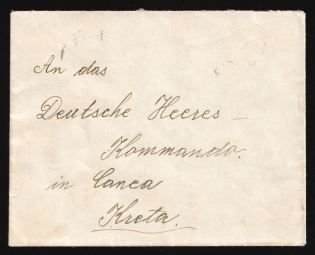 An das
Deutsche Heeres -
Kommando.
in Canea
Kreta.